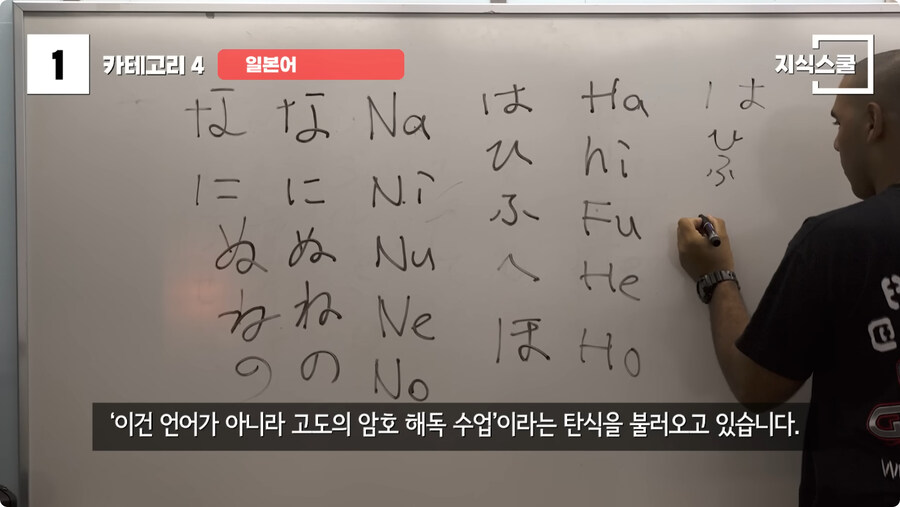 1 카테고리 4 일본어
지식스쿨
な な Na は Ha は
に に Ni ひ hi ひ
ぬ ぬ Nu ふ Fu ふ
ね ね Ne へ He
の の No ほ Ho
'이건 언어가 아니라 고도의 암호 해독 수업'이라는 탄식을 불러오고 있습니다.